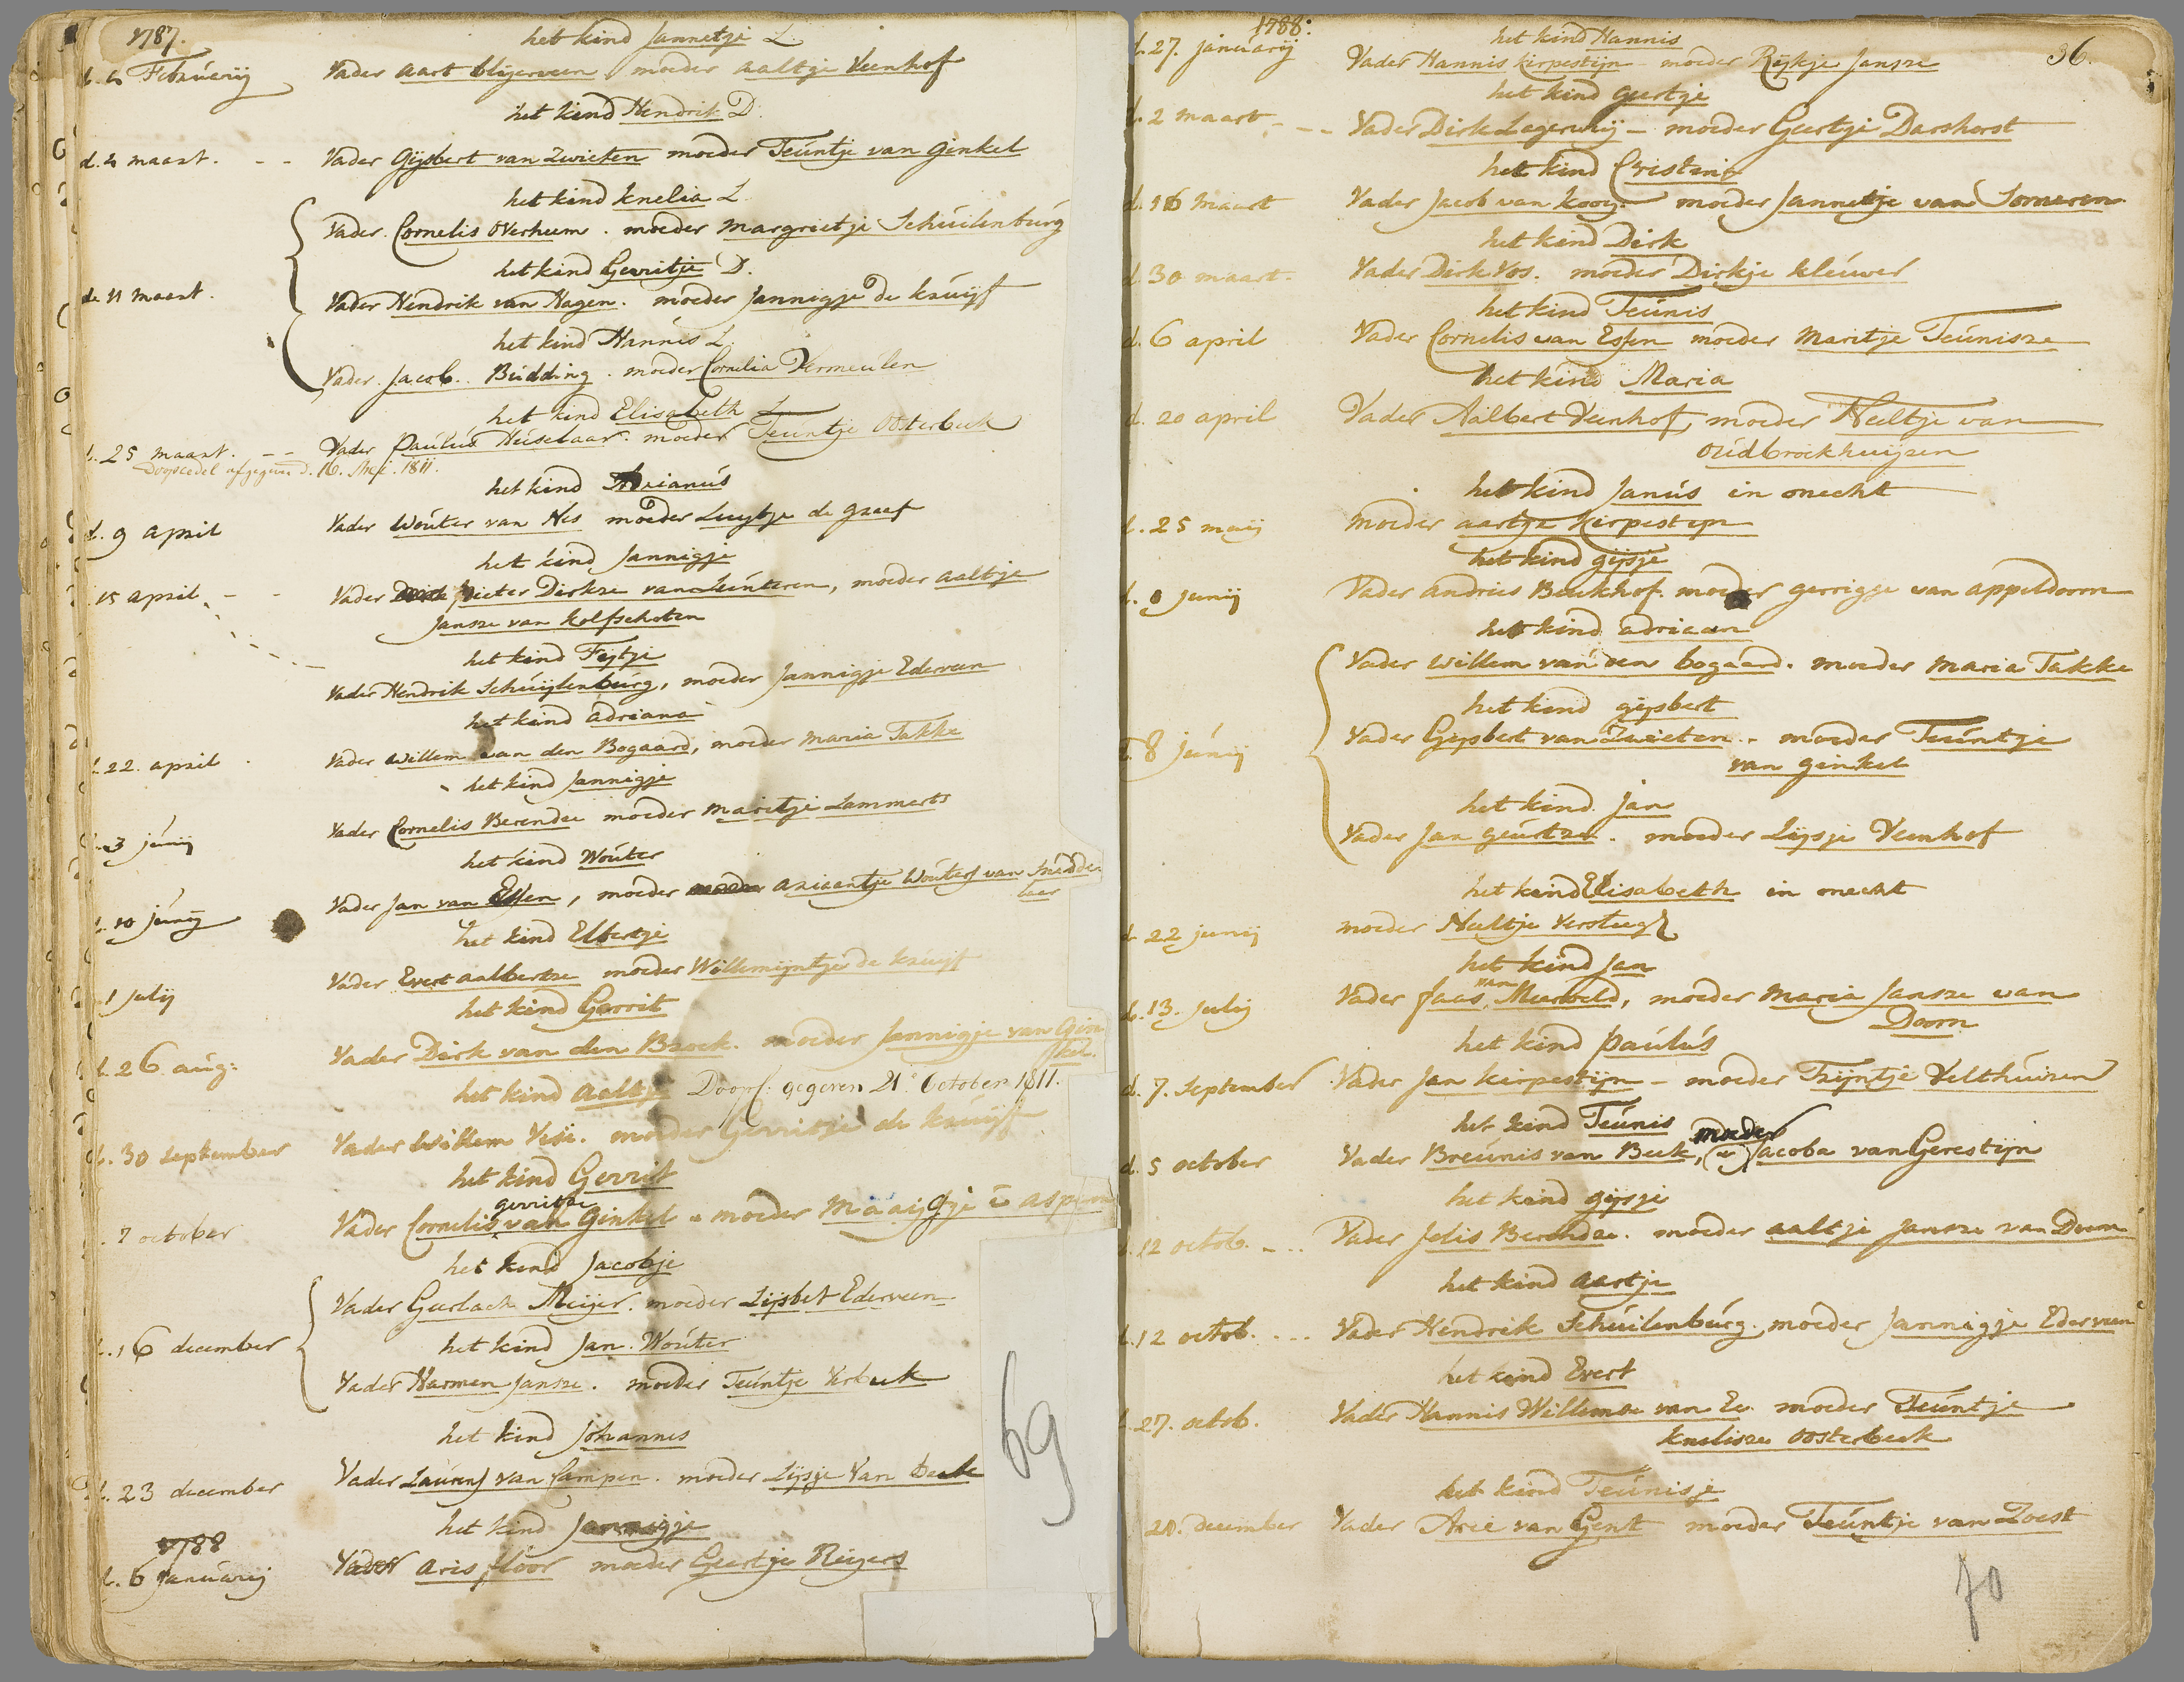 1787.
het kind Jannetje L.
d. 4 Februarij Vader aart blijerveen moeder aaltje Veenhof
het kind Hendrik D.
d. 4 maart. Vader Gijsbert van Zwieten moeder Teúntje van Ginkel
het kind Knelia L.
Vader Cornelis Overheem. moeder Margrietje Schúilenbúrg
het kind Gerritje D.
d. 11 maart. Vader Hendrik van Hagen. moeder Jannigje de Krúijff
het kind Hannis L.
Vader Jacob Búdding. moeder Cornelia Vermeúlen
het kind Elisabeth L.
d. 25 maart. Vader Paúlús Heúselaar. moeder Teúntje Oosterbeek
Doopcedel afgegeven d. 16. Mei. 1811.
het kind Adrianús
d. 9 april Vader Woúter van Nes moeder Luijtje de Graaf
het kind Jannigje
15 april Vader Pieter Dirkze van Lúnteren, moeder aaltje
Jansze van Kolfschoten
het kind Fijtje
Vader Hendrik Schúijlenbúrg, moeder Jannigje Ederveen
het kind adriana
d. 22. april Vader Willem van den Bogaard, moeder Maria Takke
het kind Jannigje
d. 3 júnij Vader Cornelis Berendse moeder Maritje Lammerts
het kind Woúter
d. 10 júnij Vader Jan van Essen, moeder Ariaantje Woúters van Snidde
laer
het kind Elbertje
1 julij Vader Evert aalbertze moeder Willemijntje de Krúijf
het kind Gerrit
d. 26 aúg: Vader Dirk van den Broek. moeder Jannigje van Gin
kel.
het kind aaltje Doopc. gegeven 21 October 1811.
d. 30 September Vader Willem Vesi. moeder Gerritje de Krúijff
het kind Gerrit
gerritze
7 october Vader Cornelis van Ginkel moeder Maaijgje v aspern
het kind Jacobje
Vader Gerlach Meijer. moeder Lijsbet Ederveen
d. 16 december het kind Jan Woúter
Vader Harmen Jansze. moeder Teúntje Verbeek
het kind Johannes
d. 23 december Vader Laúrens van Campen. moeder Lijsje Van beek
het kind Jannigje
1788
d. 6 Janúarij Vader aris floor moeder Geertje Reijers
69
1788:
36.
het kind Hannis
d. 27. januarij Vader Hannis Kirpestijn moeder Rijkje Jansze
het kind geertje
d. 2 maart Vader Dirk Lagerweij - moeder Geertje Dashorst
het kind Cristina
d. 16 maart Vader Jacob van Kooij. moeder Jannetje van Someren
het kind Dirk
d. 30 maart. Vader Dirk Vos. moeder Dirkje Kleúver
het kind Teúnis
d. 6 april Vader Cornelis van Essen moeder Maritje Teúnisze
het kind Maria
d. 20 april Vader Aalbert Veenhof, moeder Neeltje van
Oúdbroekhuijzen
het kind Janús in onecht
d. 25 maij moeder aartje Kirpestijn
het kind gijsje
d. junij Vader andries Beekhof. moeder gerrigje van appeldoorn
het kind adriaan
Vader Willem van den bogaard. moeder Maria Takke
het kind gijsbert
d. 8 júnij Vader Gijsbert van Zwieten. moeder Teúntje
van ginkel
het kind Jan
Vader Jan geúrtze. moeder Lijsje Veenhof
het kind Elisabeth in onecht
d. 22 junij moeder Neeltje Versteeg
het kind Jan
van
d. 13. Julij Vader faas Meerveld, moeder Maria Jansze van
Doorn
het kind Paúlús
d. 7. September Vader Jan Kirpestijn - moeder Trijntje Velthúizen
het kind Teúnis
moeder
d. 5 october Vader Breúnis van Beek, Jacoba van Gerestijn
het kind gijsje
d. 12 octob. Vader Jelis Berendze. moeder aaltje Jansze van Doorn
het kind aartje
d. 12 octob. Vader Hendrik Schúilenbúrg. moeder Jannigje Ederveen
het kind Evert
d. 27. octob. Vader Hannis Willemse van Ee moeder Teúntje
Knelisze Oosterbeek
het kind Teúnisje
28. december Vader Arie van Gent moeder Teúntje van Zoest
70